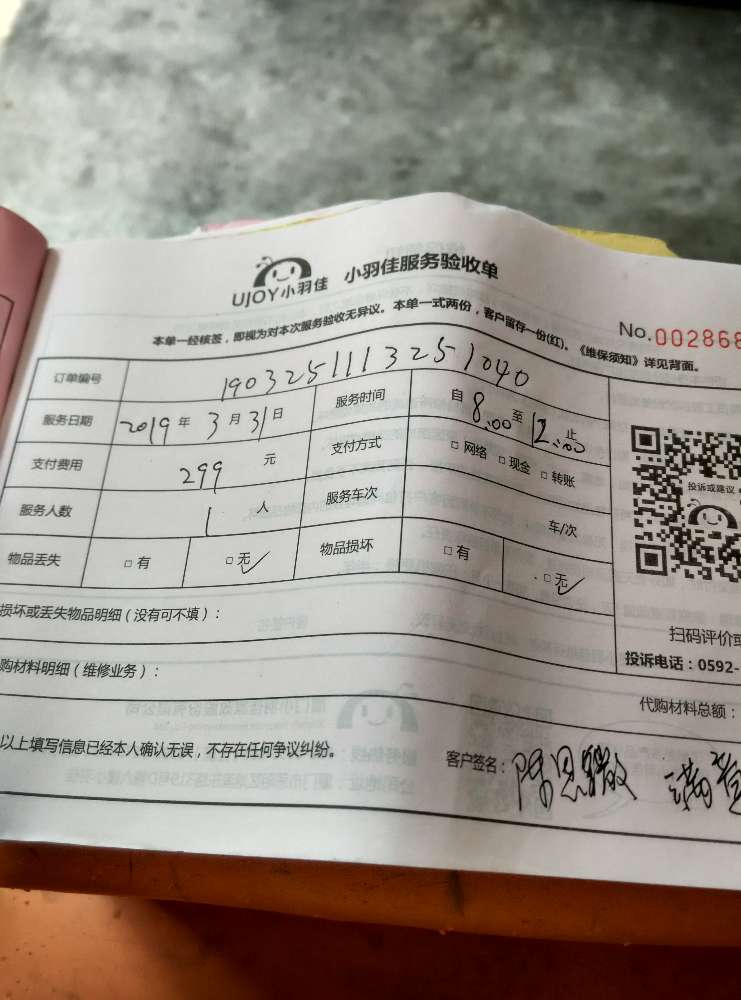 UJOY小羽佳 小羽佳服务验收单
No.002868
本单一经核签，即视为对本次服务验收无异议。本单一式两份，客户留存一份(红)。《维保须知》详见背面。
订单编号 1903251113251040
服务日期 2019年3月31日 服务时间 自8:00至12:00止
支付费用 299元 支付方式 □网络 □现金 □转账
服务人数 1人 服务车次 车/次
物品丢失 □有 □无✓ 物品损坏 □有 □无✓
投诉或建议
扫码评价或
投诉电话：0592-
损坏或丢失物品明细（没有可不填）：
购材料明细（维修业务）：
代购材料总额：
以上填写信息已经本人确认无误，不存在任何争议纠纷。
客户签名：陈思 满意